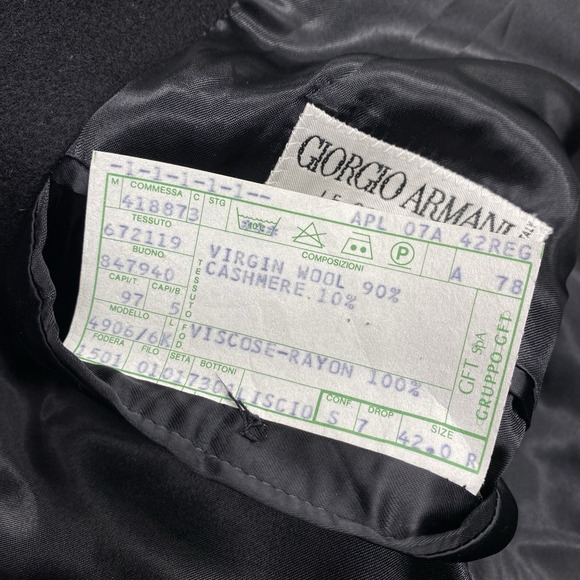 GIORGIO ARMANI
-1-1-1-1-1--
M COMMESSA C STG
418873
APL 07A 42REG
TESSUTO
672119
COMPOSIZIONI
A 78
BUONO
847940
TESSUTO
VIRGIN WOOL 90%
CASHMERE 10%
CAPI/T CAPI/B
97 5
MODELLO L
4906/6K
FOD
VISCOSE-RAYON 100%
GFT SpA
GRUPPO GFT
FODERA FILO SETA BOTTONI
1501 01017301LISCIO
CONF. DROP SIZE
S 7 42.0 R